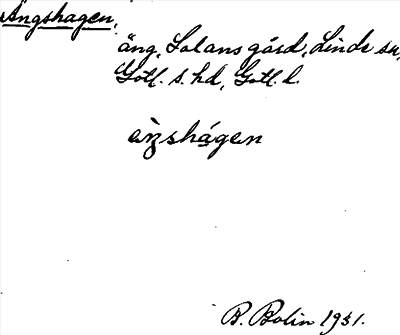 Ängshagen,
äng, Solans gård, Linde sn,
Gotl. s. hd, Gotl. l.
B. Bolin 1931.